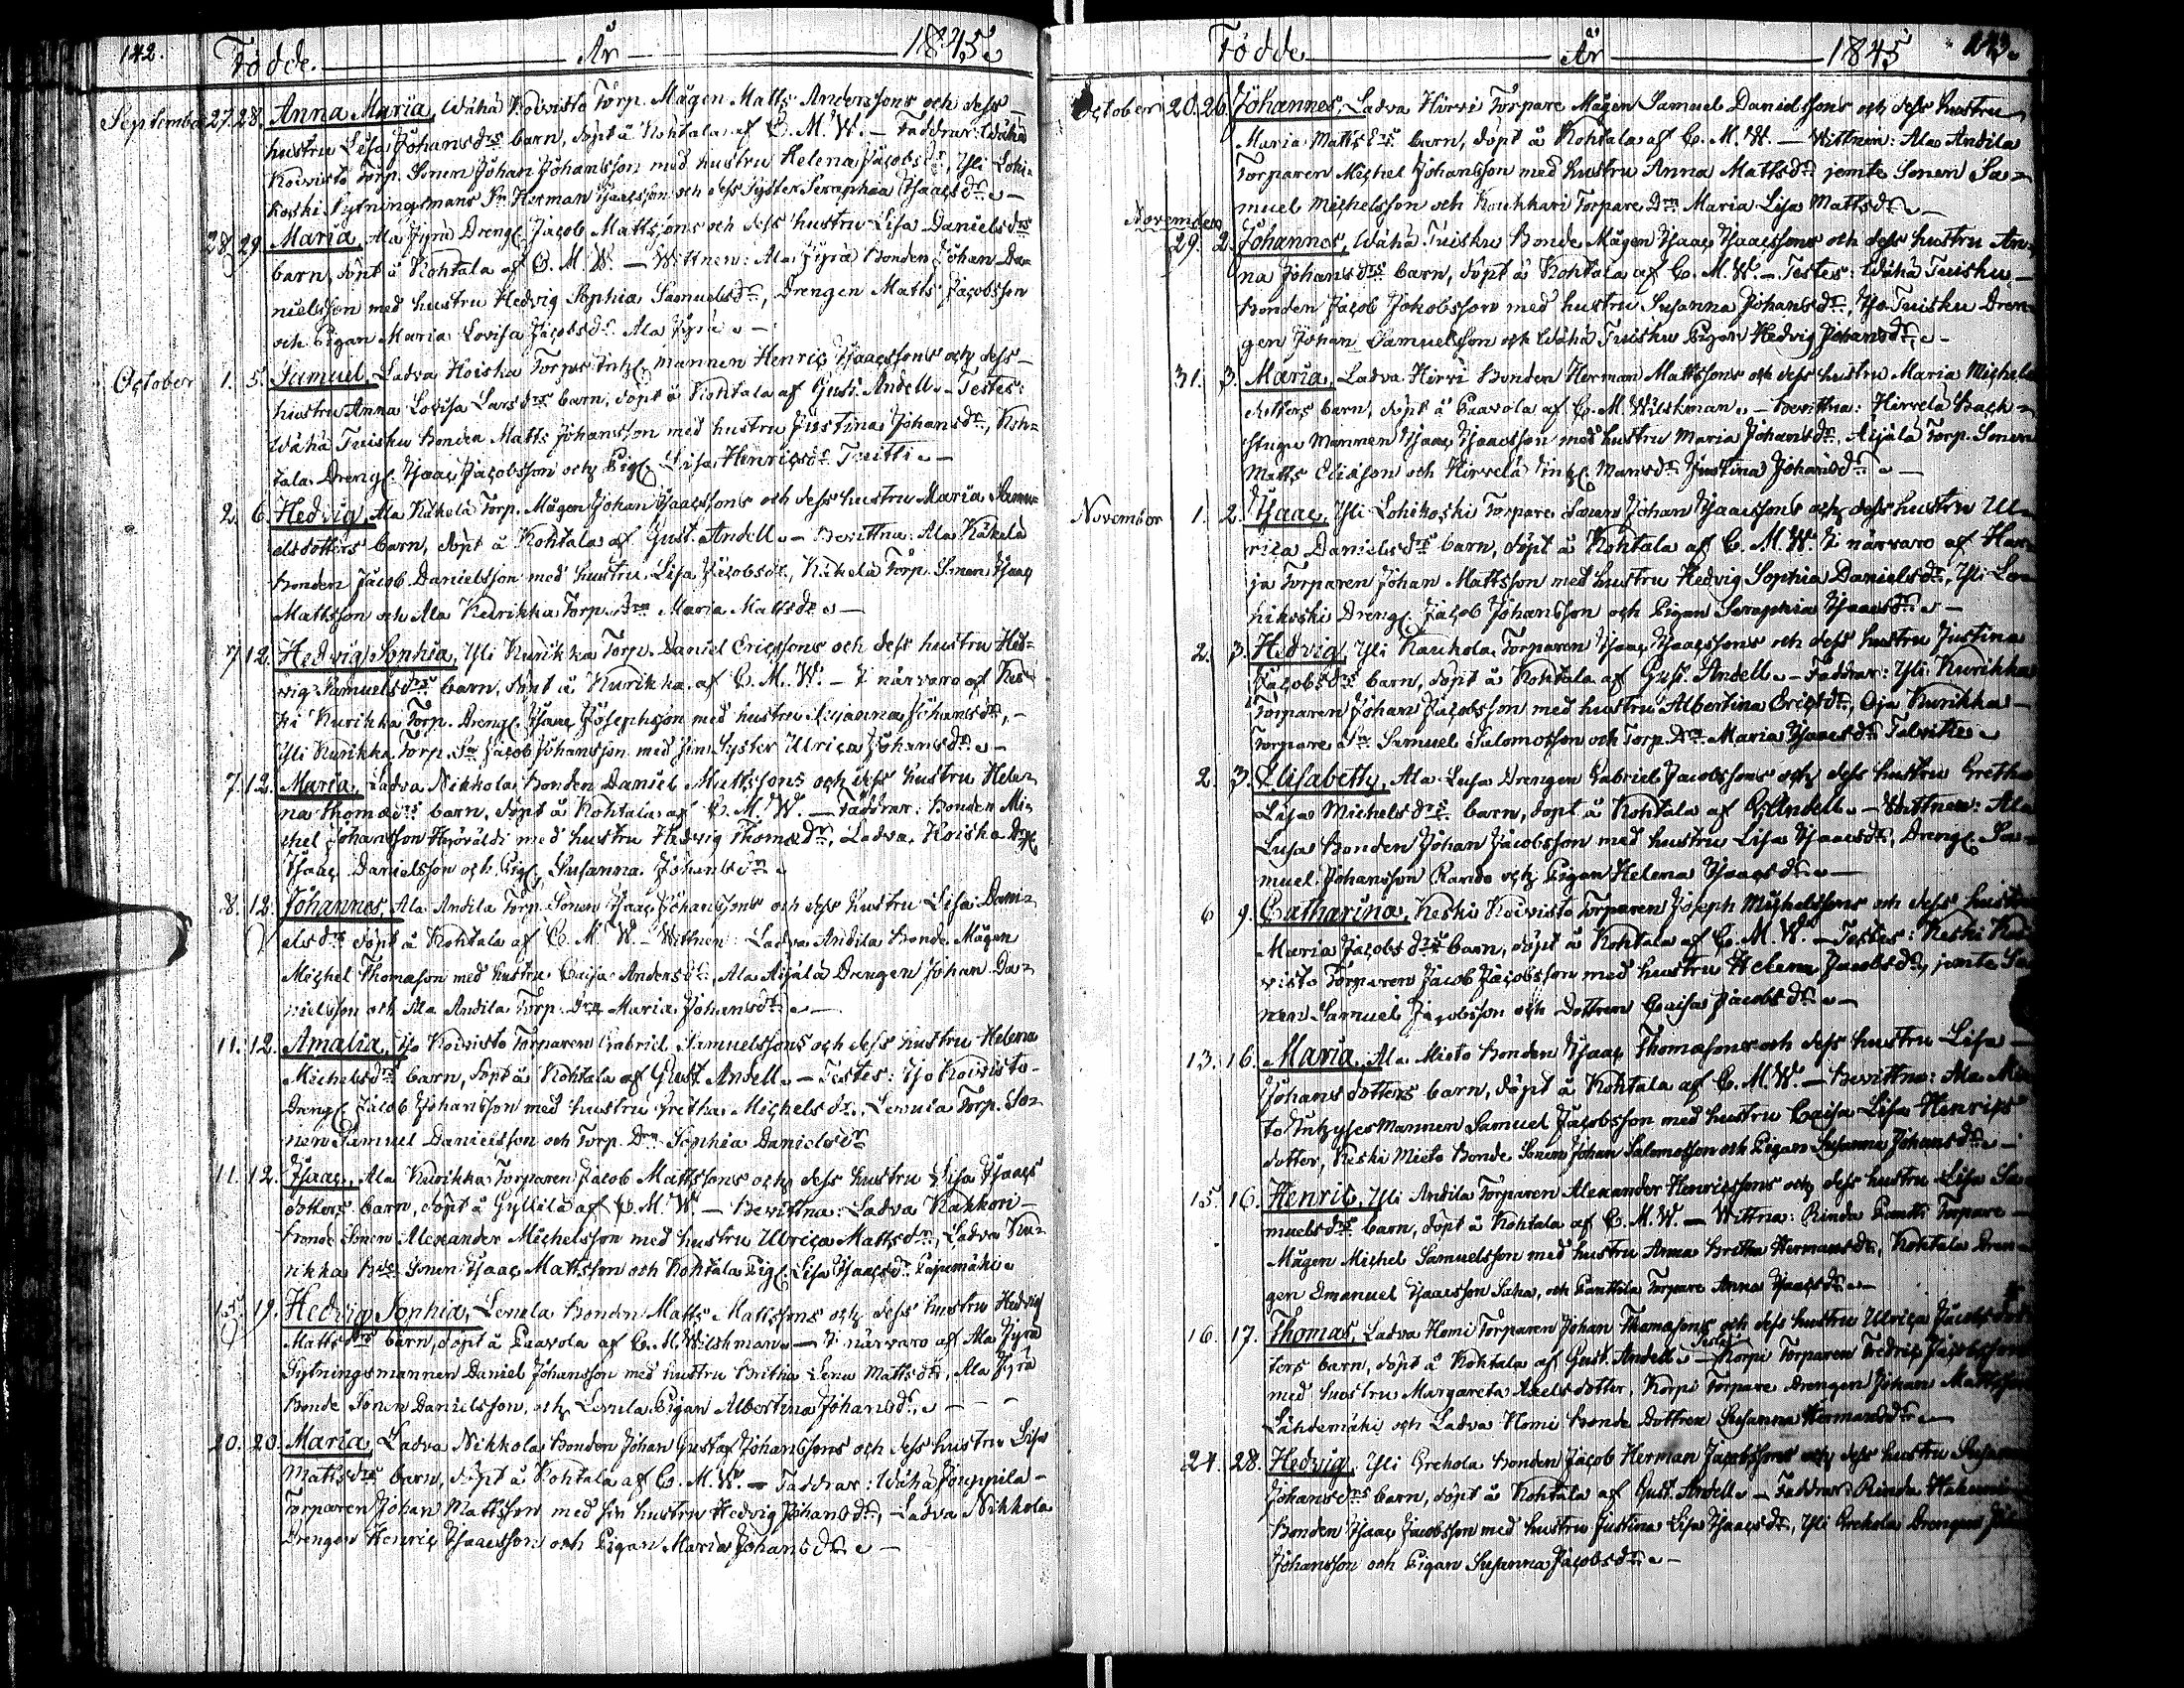 142. Födde. År 1845.
September 27. 28. Anna Maria, Wähä Koivisto Torp. Mågen Matts Anderssons och dess
hustru Lisa Johansdrs barn, döpt å Kohtala af C. M. W. — Faddrar: Wähä
Koivisto Torp. Sonen Johan Johansson med hustru Helena Jacobsdr, Yli Lohi-
koski Sytningsmans Sn Herman Isacsson och dess Syster Seraphia Isacsdr. —
28. 29. Maria, Ala Jyrä Dreng. Jacob Mattssons och dess hustru Lisa Danielsdrs
barn, döpt å Kohtala af C. M. W. — Wittnen: Ala Jyrä Bonden Johan Da-
nielsson med hustru Hedvig Sophia Samuelsdr, Drengen Matts Jacobsson
och Pigan Maria Lovisa Jacobsdr Ala Jyrä. —
October 1. 5. Samuel, Ladva Koiska Torps Inh. mannen Henric Isacssons och dess
hustru Anna Lovisa Larsdrs barn, döpt å Kohtala af Gust. Andell. — Testes:
Wähä Tuisku Bonden Matts Johansson med hustru Justina Johansdr, Koh-
tala Dreng. Isaac Jacobsson och Pig. Lisa Henricsdr Tuitti. —
2. 6. Hedvig, Ala Käkelä Torp. Mågen Johan Isaacssons och dess hustru Maria Samu-
elsdotters barn, döpt å Kohtala af Gust. Andell. — Bevittna: Ala Käkelä
Bonden Jacob Danielsson med hustru Lisa Jacobsdr, Käkelä Torp. Sonen Isaac
Mattsson och Ala Kurikka Torp. Drn Maria Mattsdr. —
7. 12. Hedvig Sophia, Yli Kurikka Torp. Daniel Ericssons och dess hustru Hed-
vig Samuelsdrs barn, döpt å Kurikka af C. M. W. — I närvaro af Kes-
ki Kurikka Torp. Dreng. Isaac Josephsson med hustru Susanna Johansdr, —
Yli Kurikka Torp. Sn Jacob Johansson med sin Syster Ulrica Johansdr. —
7. 12. Maria, Ladva Nikkola Bonden Daniel Mattssons och dess hustru Hele-
na Thomædrs barn, döpt å Kohtala af C. M. W. — Faddrar: Bonden Mi-
chel Johansson med hustru Hedvig Thomædr, Ladva Koiska Dr.
Isaac Danielsson och Pig. Susanna Johansdr.
8. 12. Johannes, Ala Andila Torp. Sonen Isaac Johanssons och dess hustru Lisa Dani-
elsdrs döpt å Kohtala af C. M. W. — Wittnen: Ladva Andila Bonde Mågen
Michel Thomason med hustru Caisa Andersdr, Ala Äijälä Drengen Johan Da-
nielsson och Ala Andila Torp. Drn Maria Johansdr. —
11. 12. Amalia, Iso Koivisto Torparen Gabriel Samuelssons och dess hustru Helena
Michelsdrs barn, döpt å Kohtala af Gust. Andell. — Testes: Iso Koivisto
Dreng. Jacob Johansson med hustru Gretha Michelsdr, Lerula Torp. So-
nen Samuel Danielsson och Torp. Drn Sophia Danielsdr
11. 12. Isaac, Ala Kurikka Torparen Jacob Mattssons och dess hustru Lisa Isaacs
dotters barn, döpt å Gyllilä af C. M. W. — Bevittna: Ladva Kakkori
Bonde Sonen Alexander Michelsson med hustru Ulrica Mattsdr, Ladva Ku-
rikka Bde Sonen Isaac Mattsson och Kohtala Pig. Lisa Isaacsdr Papinmäki.
15. 19. Hedvig Sophia, Lerula Bonden Matts Mattssons och dess hustru Hedvig
Mattsdrs barn, döpt å Paavola af C. M. Wilskman. — I närvaro af Ala Jyrä
Sytningsmannen Daniel Johansson med hustru Britha Lena Mattsdr, Ala Jyrä
Bonde Sonen Danielsson, och Lerula Pigan Albertina Johansdr. —
20. 20. Maria, Ladva Nikkola Bonden Johan Gustaf Johanssons och dess hustru Lisa
Mattsdrs barn, döpt å Kohtala af C. M. W. — Faddrar: Wähä Jouppila
Torparen Johan Mattsson med sin hustru Hedvig Johansdr, — Ladva Nikkola
Drengen Henric Isaacsson och Pigan Maria Johansdr. —
Födde År 1845 143.
October 20. 26. Johannes, Ladva Hirvi Torpare Mågen Samuel Danielssons och dess hustru
Maria Mattsdrs barn, döpt å Kohtala af C. M. W. — Wittnen: Ala Andila
Torparen Michel Johansson med hustru Anna Mattsdr jemte Sonen Sa-
muel Michelsson och Koukkari Torpare Drn Maria Lisa Mattsdr. —
November
29. 2. Johannes, Wähä Tuisku Bonde Mågen Isaac Isaacssons och dess hustru An-
na Johansdrs barn, döpt å Kohtala af C. M. W. — Testes: Wähä Tuisku
Bonden Jacob Jakobsson med hustru Susanna Johansdr, Iso Tuisku Dren-
gen Johan Samuelsson och Wähä Tuisku Pigan Hedvig Johansdr. —
31. 3. Maria, Ladva Hirvi Bonden Herman Mattssons och dess hustru Maria Michels
dotters barn, döpt å Paavola af C. M. Wilskman. — Bevittna: Hirvelä Back-
stugu Mannen Isaac Isaacsson med hustru Maria Johansdr, Äijälä Torp. Sonen
Matts Eliasson och Hirvelä Inh. Mansdr Justina Johansdr. —
November 1. 2. Isaac, Yli Lohikoski Torpare Sonen Johan Isaacssons och dess hustru Ul-
rica Danielsdrs barn, döpt å Kohtala af C. M. W. I närvaro af Har-
ja Torparen Johan Mattsson med hustru Hedvig Sophia Danielsdr, Yli Lo-
hikoski Dreng. Jacob Johansson och Pigan Seraphia Isaacsdr. —
2. 3. Hedvig, Yli Kaukola Torparen Isaac Isaacssons och dess hustru Justina
Jacobsdrs barn, döpt å Kohtala af Gust. Andell. — Faddrar: Yli Kurikka
Torparen Johan Jacobsson med hustru Albertina Ericsdr, Oja Kurikka
Torpare Sn Samuel Salomosson och Torp. Drn Maria Isaacsdr Talvitie.
2. 3. Elisabeth, Ala Luja Drengen Gabriel Jacobssons och dess hustru Gretha
Lisa Michelsdrs barn, döpt å Kohtala af G. Andell. — Wittnen: Ala
Luja Bonden Johan Jacobsson med hustru Lisa Isaacsdr, Dreng. Sa-
muel Johansson Rando och Pigan Helena Isaacsdr. —
6 9. Catharina, Keski Koivisto Torparen Joseph Michelssons och dess hustru
Maria Jacobsdrs barn, döpt å Kohtala af C. M. W. — Testes: Keski Koi
visto Torparen Jacob Jacobsson med hustru Helena Jacobsdr, jemte So
nen Samuel Jacobsson och Dottren Caisa Jacobsdr. —
13. 16. Maria, Ala Mieto Bonden Isaac Thomasons och dess hustru Lisa
Johans dotters barn, döpt å Kohtala af C. M. W. — Bevittna: Ala Mie
to Inhyses Mannen Samuel Jacobsson med hustru Caisa Lisa Henrics
dotter, Keski Mieto Bonde Sonen Johan Salomosson och Pigan Susanna Johansdr. —
15. 16. Henric, Yli Andila Torparen Alexander Henricssons och dess hustru Lisa Sa
muelsdrs barn, döpt å Kohtala af C. M. W. — Wittna: Rinda Pantti Torpare
Mågen Michel Samuelsson med hustru Anna Britha Hermansdr, Kohtala Dren-
gen Emanuel Isaacsson Saha, och Panttila Torpare Anna Isaacsdr. —
16. 17. Thomas, Ladva Homi Torparen Johan Thomasons och dess hustru Ulrica Jacobsdot
ters barn, döpt å Kohtala af Gust. Andell. — Testes: Korpi Torparen Fredric Jacobsson
med hustru Margareta Axelsdotter, Korpi Torpare Drengen Johan Mattsson
Lähdemäki och Ladva Homi Bonde Dottren Susanna Hermansdr. —
24. 28. Hedvig, Yli Grekola Bonden Jacob Herman Jacobssons och dess hustru Susanna
Johansdrs barn, döpt å Kohtala af Gust. Andell. — Faddrar: Rinda
Bonden Isaac Jacobsson med hustru Justina Lisa Isaacsdr, Yli Grekola Drengen
Johansson och Pigan Susanna Jacobsdr. —